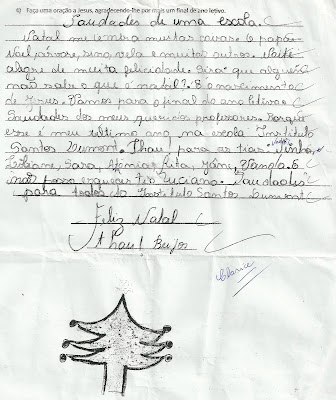 6) Faça uma oração a Jesus, agradecendo-lhe por mais um final de ano letivo.
Saudades de uma escola.
Natal me lembra muitas coisas: O papai
Noel, árvore, sino, vela e muitos outros. Noite
alegre de muita felicidade. Será que alguém
não sabe o que é natal?. É o nascimento
de Jesus. Vamos para o final do ano letivo
Saudades dos meus queridos professores. Porque
esse é meu último ano na escola Instituto
Santos Dumont. Thau! para as tias:
Sara, Rita, Vanda. E
não posso esquecer tio Luciano. Saudades
para todos do Instituto Santos Dumont
Feliz Natal
Thau! Beijos
Clarice